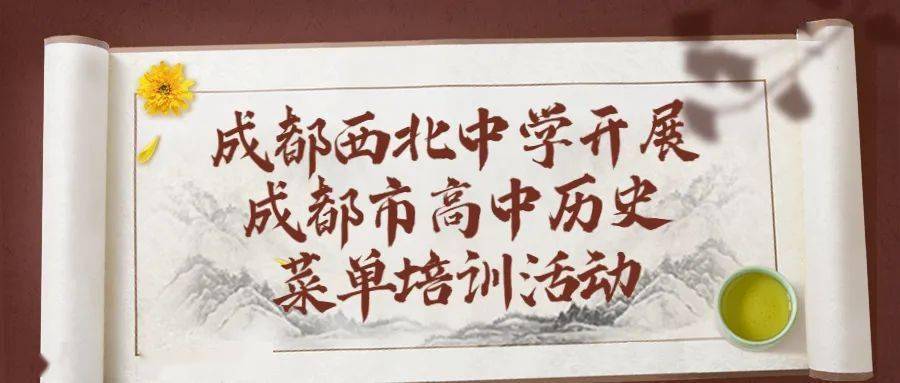 成都西北中学开展
成都市高中历史
菜单培训活动